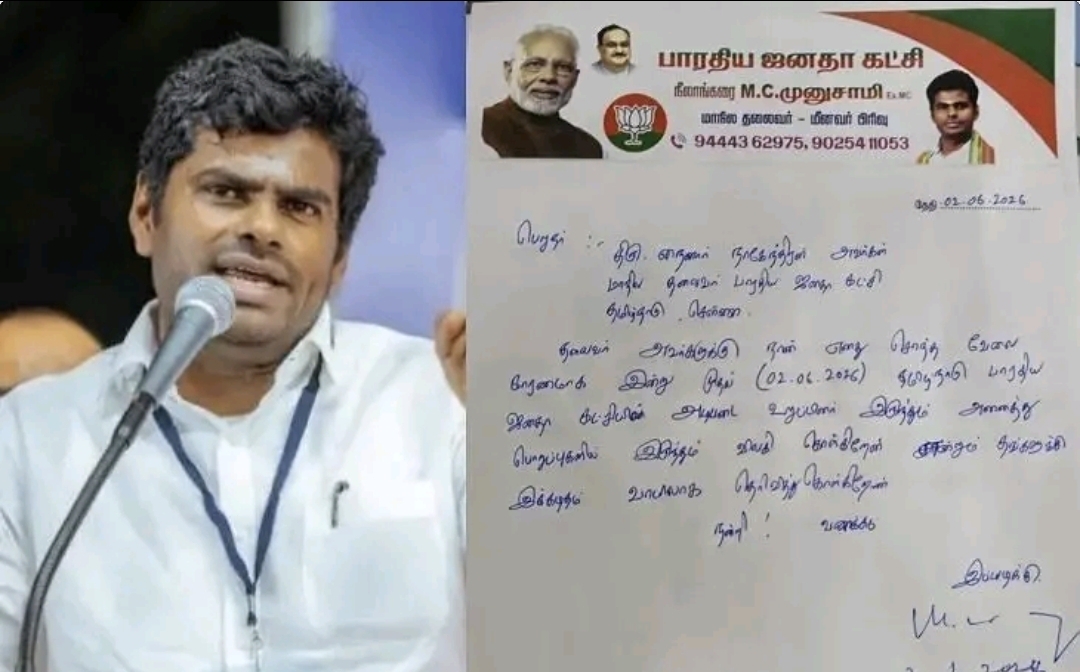 பாரதிய ஜனதா கட்சி
நீலாங்கரை M.C.முனுசாமி Ex.MC
மாநில தலைவர் - மீனவர் பிரிவு
94443 62975, 90254 11053
தேதி 02.06.2026
பெறுநர் :-
திரு. நைனார் நாகேந்திரன் அவர்கள்
மாநில தலைவர் பாரதிய ஜனதா கட்சி
தமிழ்நாடு . சென்னை .
தலைவர் அவர்களுக்கு நான் எனது சொந்த வேலை
காரணமாக இன்று முதல் (02.06.2026) தமிழ்நாடு பாரதிய
ஜனதா கட்சியின் அடிப்படை உறுப்பினர் இருந்தும் அனைத்து
இருந்தும் விலகி கொள்கிறேன்
இக்கடிதம் வாயிலாக தெரிவித்து கொள்கிறேன்
நன்றி ! வணக்கம்
இப்படிக்கு.